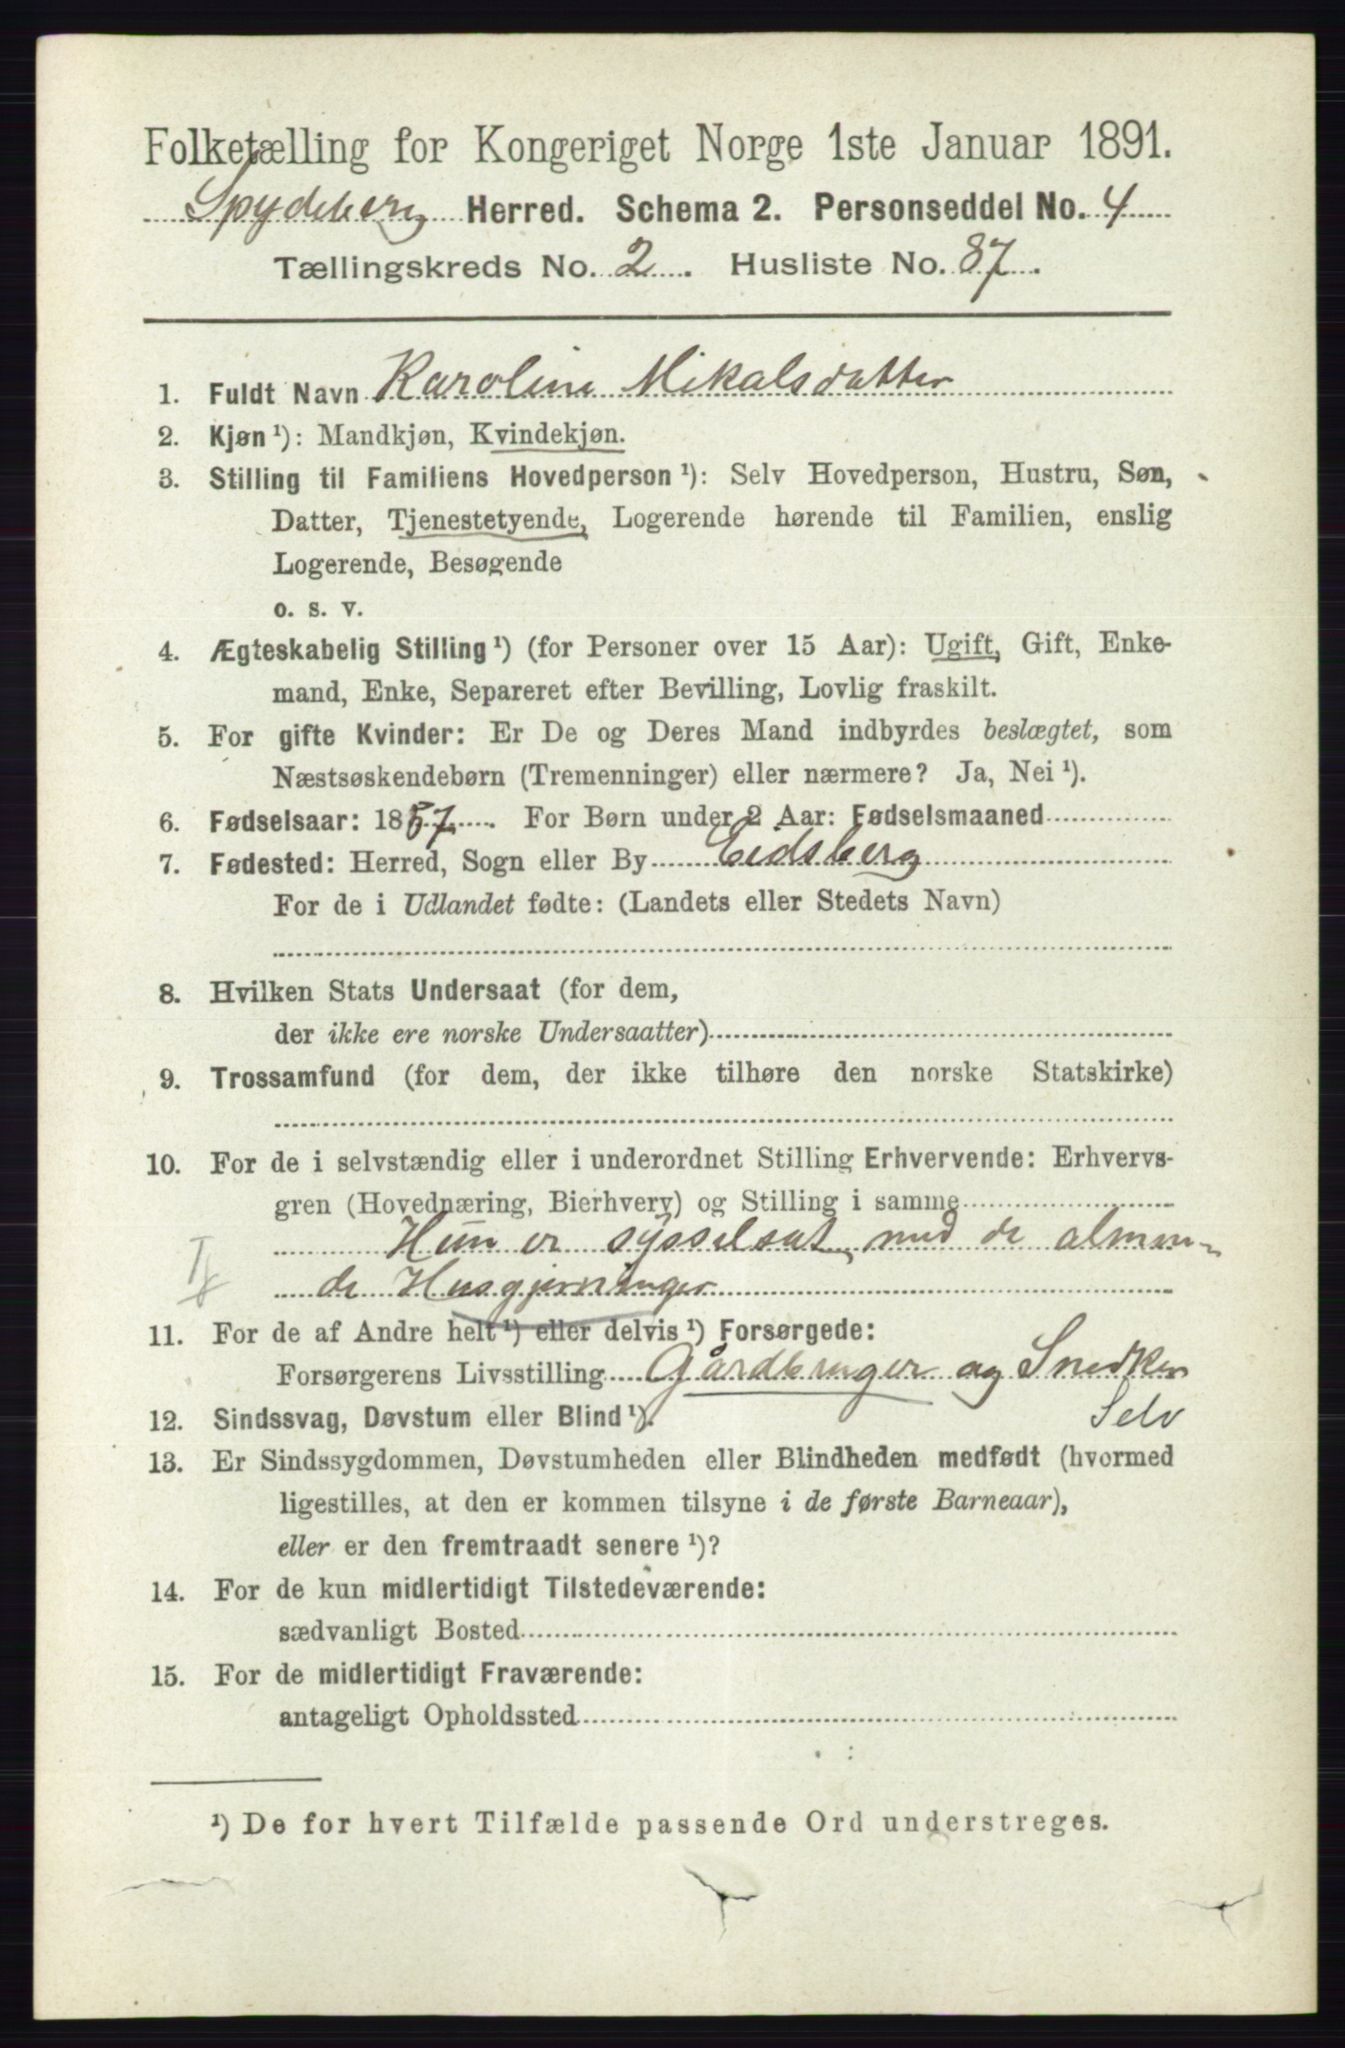 Folketælling for Kongeriget Norge 1ste Januar 1891.
Spydeberg Herred. Schema 2. Personseddel No. 4
Tællingskreds No. 2. Husliste No. 87.
1. Fuldt Navn Karoline Mikalsdatter
2. Kjøn ¹): Mandkjøn, Kvindekjøn.
3. Stilling til Familiens Hovedperson ¹): Selv Hovedperson, Hustru, Søn,
Datter, Tjenestetyende, Logerende hørende til Familien, enslig
Logerende, Besøgende
o. s. v.
4. Ægteskabelig Stilling ¹) (for Personer over 15 Aar): Ugift, Gift, Enke-
mand, Enke, Separeret efter Bevilling, Lovlig fraskilt.
5. For gifte Kvinder: Er De og Deres Mand indbyrdes beslægtet, som
Næstsøskendebørn (Tremenninger) eller nærmere? Ja, Nei ¹).
6. Fødselsaar: 1857. For Børn under 2 Aar: Fødselsmaaned
7. Fødested: Herred, Sogn eller By Eidsberg
For de i Udlandet fødte: (Landets eller Stedets Navn)
8. Hvilken Stats Undersaat (for dem,
der ikke ere norske Undersaatter)
9. Trossamfund (for dem, der ikke tilhøre den norske Statskirke)
10. For de i selvstændig eller i underordnet Stilling Erhvervende: Erhvervs-
gren (Hovednæring, Bierhverv) og Stilling i samme
Hun er sysselsat med de almin-
de Husgjerninger
11. For de af Andre helt ¹) eller delvis ¹) Forsørgede:
Forsørgerens Livsstilling Gårdbruger og Snedker
12. Sindssvag, Døvstum eller Blind ¹). Selv
13. Er Sindssygdommen, Døvstumheden eller Blindheden medfødt (hvormed
ligestilles, at den er kommen tilsyne i de første Barneaar),
eller er den fremtraadt senere ¹)?
14. For de kun midlertidigt Tilstedeværende:
sædvanligt Bosted
15. For de midlertidigt Fraværende:
antageligt Opholdssted
¹) De for hvert Tilfælde passende Ord understreges.